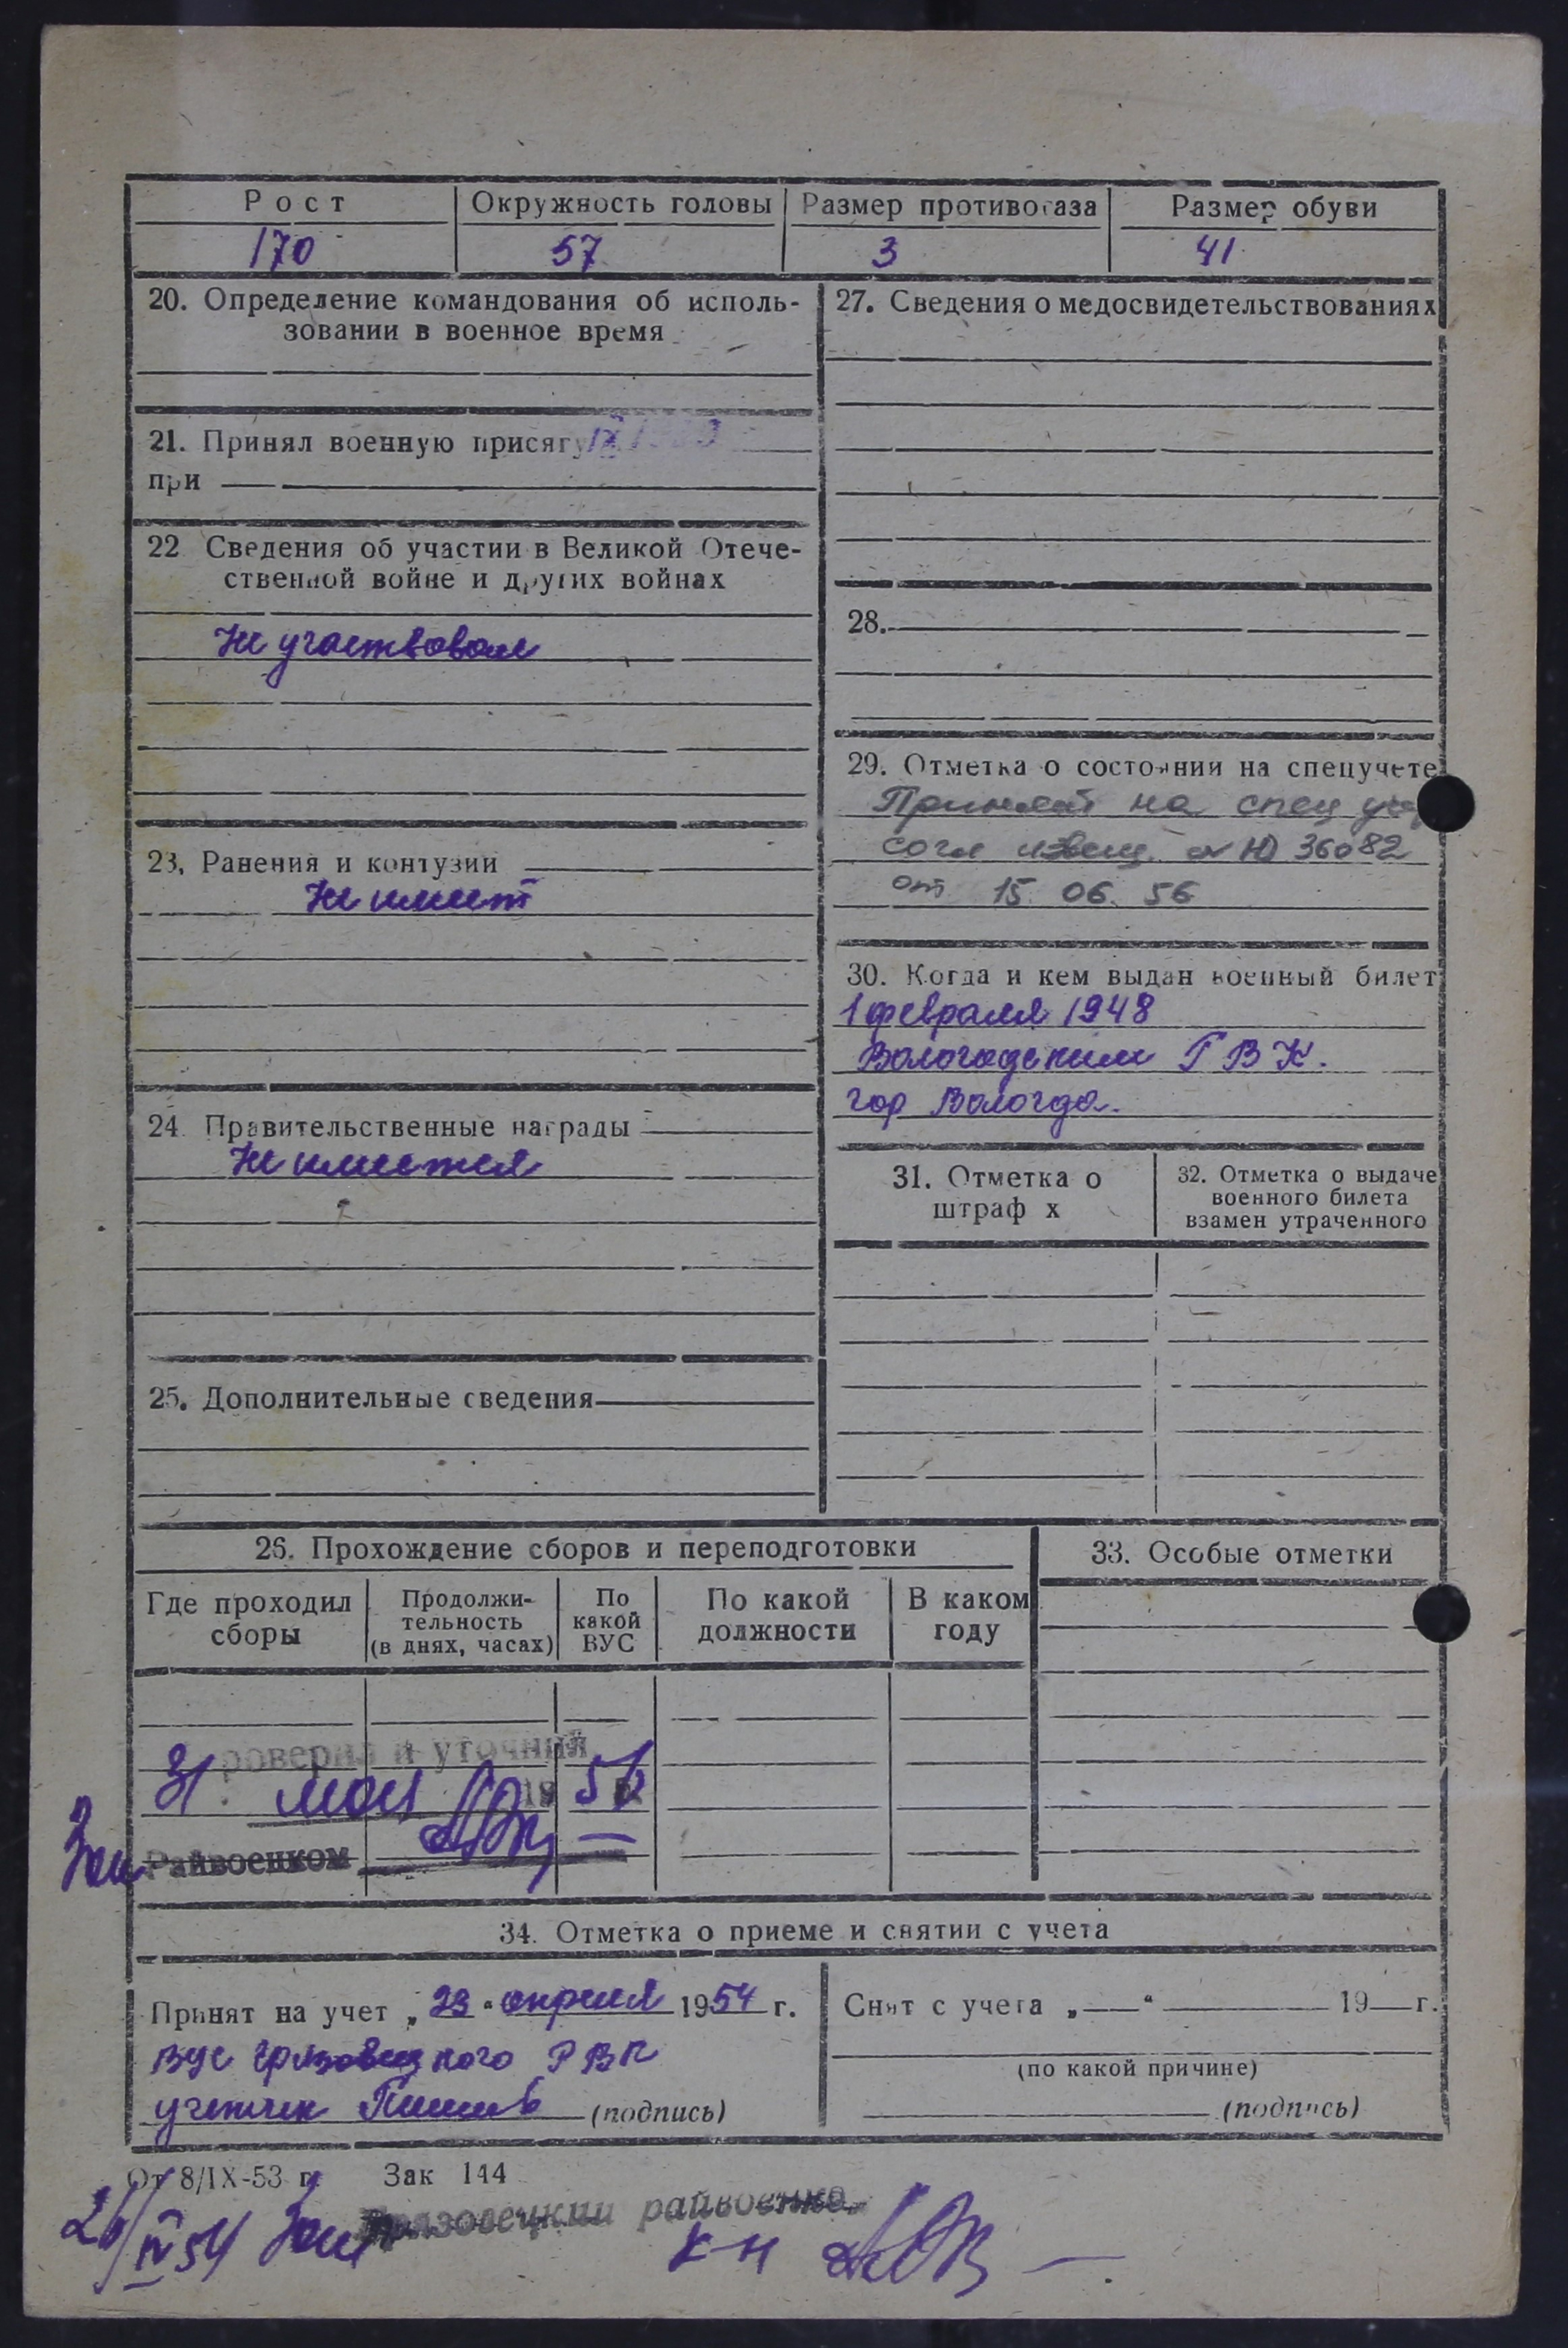 Рост Окружность головы Размер противогаза Размер обуви
170 57 3 41
20. Определение командования об исполь-
зовании в военное время
21. Принял военную присягу IX
при
22 Сведения об участии в Великой Отече-
ственной войне и других войнах
Не участвовал
23. Ранения и контузии
Не имеет
24. Правительственные награды
Не имеется
25. Дополнительные сведения
27. Сведения о медосвидетельствованиях
28.
29. Отметка о состоянии на спецучете
Принят на спец
согл извещ. 36082
от 15 06. 56
30. Когда и кем выдан военный билет
1 февраля 1948
Вологодским ГВК.
гор Вологда.
31. Отметка о
штраф х
32. Отметка о выдаче
военного билета
взамен утраченного
26. Прохождение сборов и переподготовки
Где проходил
сборы
Продолжи-
тельность
(в днях, часах)
По
какой
ВУС
По какой
должности
В каком
году
роверил и уточнил
31 мая 19 56
Зам Райвоенком
33. Особые отметки
34. Отметка о приеме и снятии с учета
Принят на учет „23“ апреля 1954 г.
ВУС Грязовецкого РВК
учетчик (подпись)
Снят с учета „ “ 19 г.
(по какой причине)
(подпись)
От 8/IX-53 г. Зак 144
26/IV 54 Зам Грязовецкий райвоенко
к-н